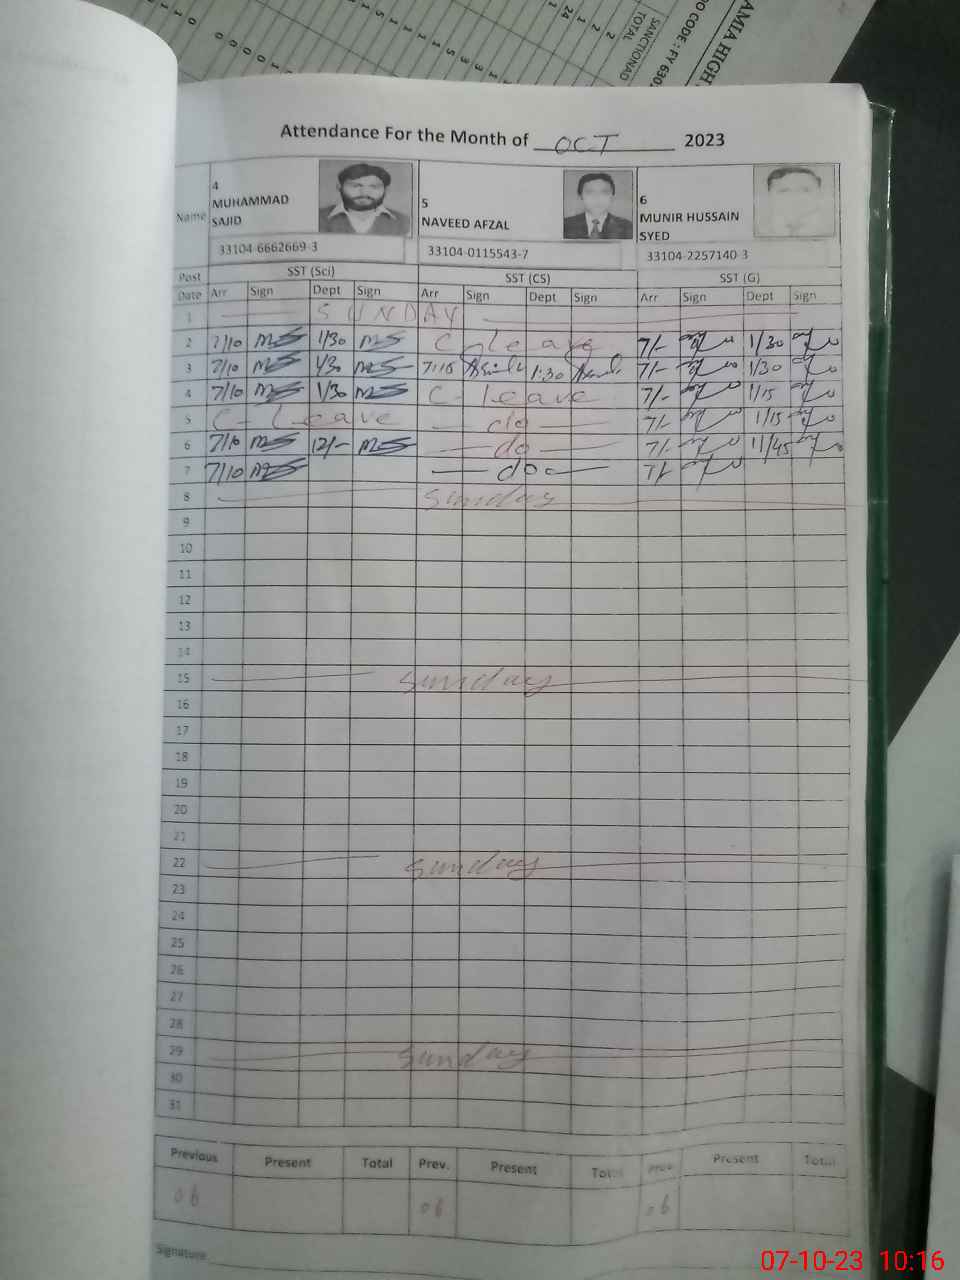 AMIA HIGH
DO CODE : FY 630
SANCTIONAD
TOTAL
Attendance For the Month of OCT 2023
Name 4 MUHAMMAD SAJID 5 NAVEED AFZAL 6 MUNIR HUSSAIN SYED
33104-6662669-3 33104-0115543-7 33104-2257140-3
Post SST (Sci) SST (CS) SST (G)
Date Arr Sign Dept Sign Arr Sign Dept Sign Arr Sign Dept Sign
1 SUNDAY
2 7/10 MS 1/30 MS C leave 7/- 1/30
3 7/10 MS 1/30 MS 7:15 1:30 7/- 1/30
4 7/10 MS 1/30 MS C- leave 7/- 1/15
5 C- Leave do 7/- 1/15
6 7/10 MS 12/- MS do 7/- 11/45
7 7/10 MS do 7/
8 Sunday
9
10
11
12
13
14
15 Sunday
16
17
18
19
20
21
22 Sunday
23
24
25
26
27
28
29 Sunday
30
31
Previous Present Total Prev. Present Total Prev Present Total
06 06 06
Signature
07-10-23 10:16